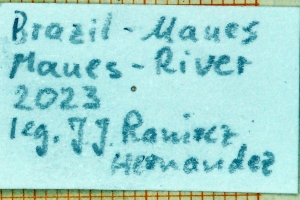 Brazil - Maues
Maues - River
2023
leg. J J. Ramirez
Hernandez